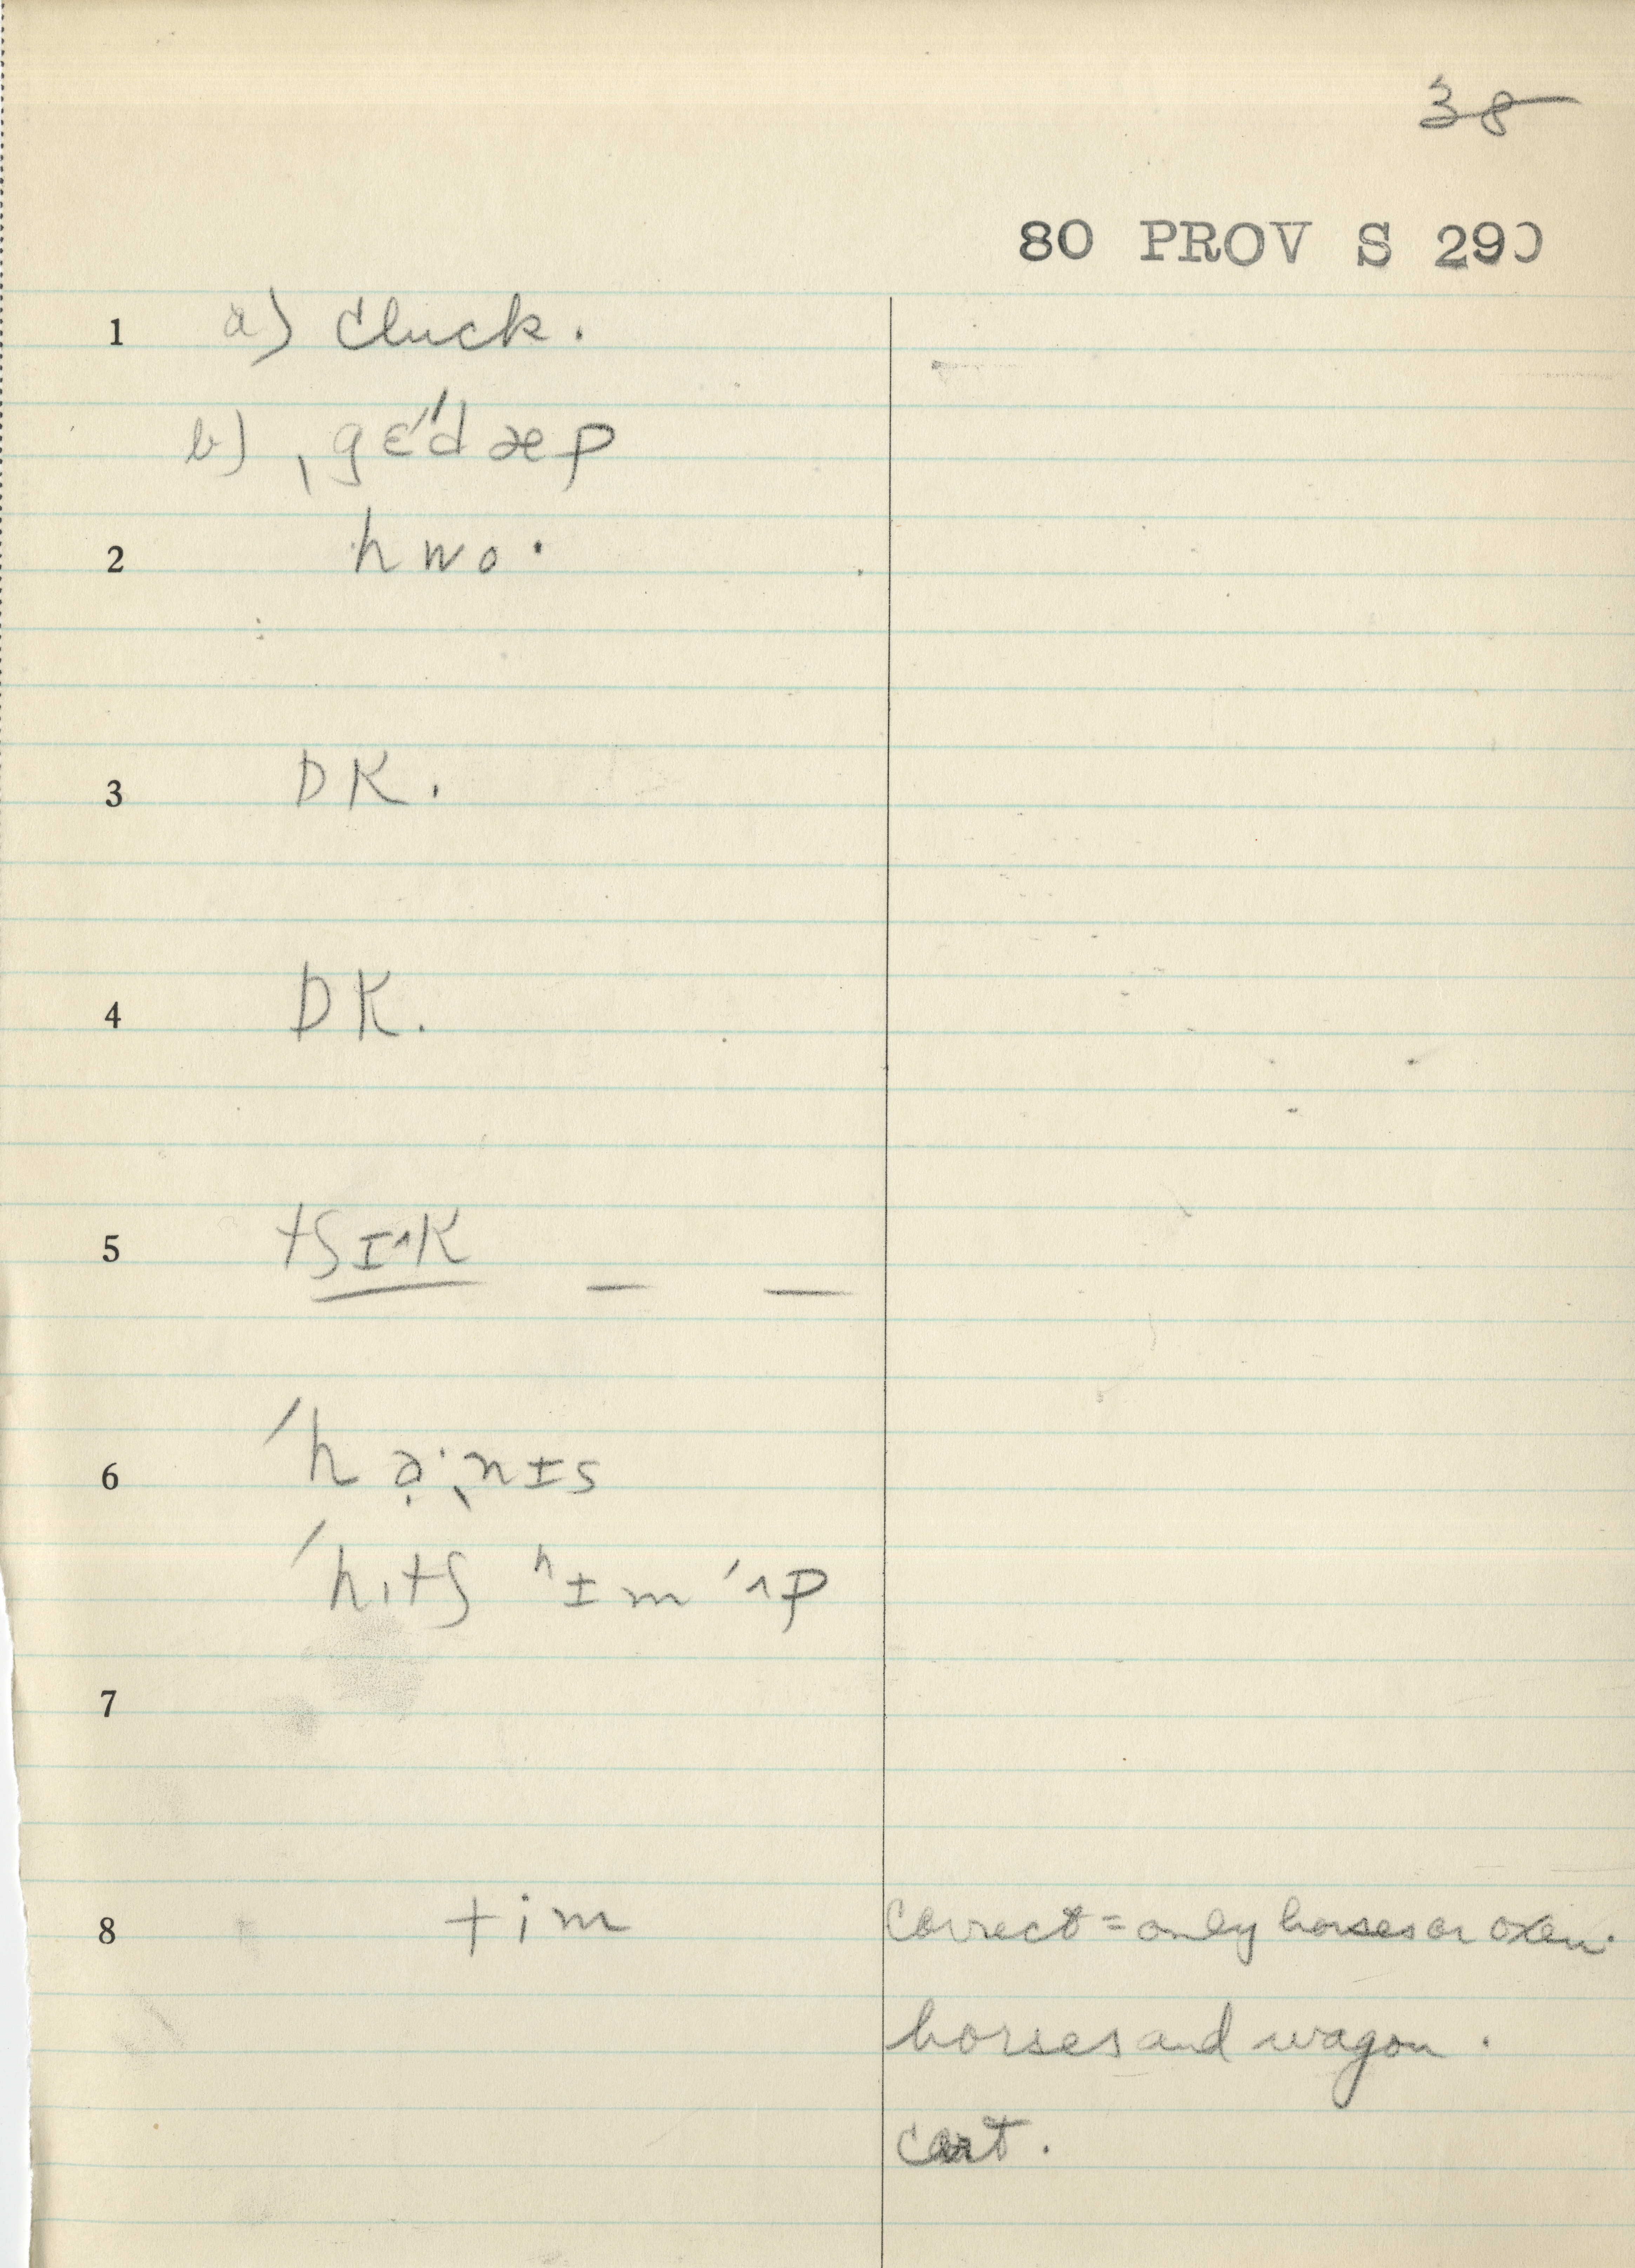 38
80 PROV S 290
1 a) cluck.
b) ˌgɛ'dæp
2 hwo·
3 DK.
4 DK.
5 tʃɪ^K — —
6 ˈhạ·ˎnɪs
ˈhɪtʃ ʰɪm ˈʌp
7
8 tim correct = only horses or oxen.
horses and wagon.
cart.